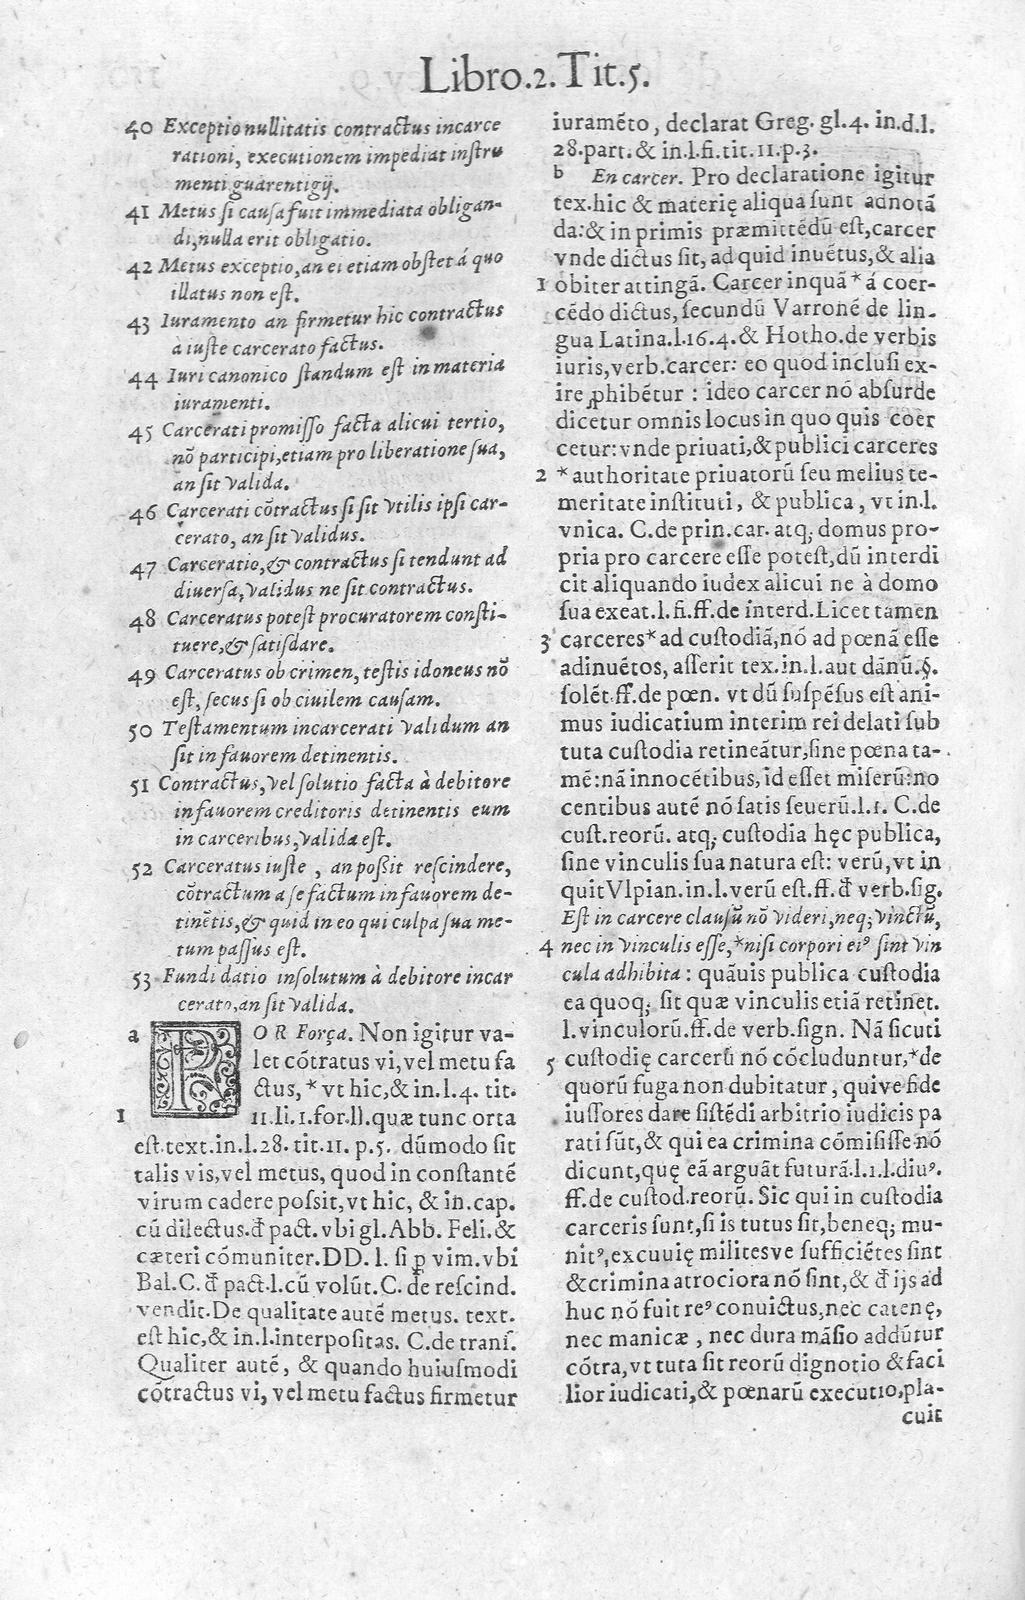 Libro.2.Tit.5.
40 Exceptio nullitatis contractus incarce
rationi, executionem impediat instru
menti guarentigij.
41 Metus si causa fuit immediata obligan-
di, nulla erit obligatio.
42 Metus exceptio, an ei etiam obstet á quo
illatus non est.
43 Iuramento an firmetur hic contractus
à iuste carcerato factus.
44 Iuri canonico standum est in materia
iuramenti.
45 Carcerati promisso facta alicui tertio,
nō participi, etiam pro liberatione sua,
an sit valida.
46 Carcerati cōtractus si sit vtilis ipsi car-
cerato, an sit validus.
47 Carceratio, & contractus si tendunt ad
diuersa, validus ne sit contractus.
48 Carceratus potest procuratorem consti-
tuere, & satisdare.
49 Carceratus ob crimen, testis idoneus nō
est, secus si ob ciuilem causam.
50 Testamentum incarcerati validum an
sit in fauorem detinentis.
51 Contractus, vel solutio facta à debitore
in fauorem creditoris detinentis eum
in carceribus, valida est.
52 Carceratus iuste, an possit rescindere,
cōtractum a se factum in fauorem de-
tinētis, & quid in eo qui culpa sua me-
tum passus est.
53 Fundi datio insolutum à debitore incar
cerato, an sit valida.
a POR Força. Non igitur va-
let cōtratus vi, vel metu fa
ctus, * vt hic, & in.l.4. tit.
1 11.li.1.for.ll. quæ tunc orta
est.text.in.l.28.tit.11. p.5. dūmodo sit
talis vis, vel metus, quod in constantē
virum cadere possit, vt hic, & in.cap.
cū dilectus.đ pact. vbi gl. Abb. Feli. &
cæteri cōmuniter. DD. l. si ꝑ vim. vbi
Bal. C. đ pact.l. cū volūt. C. de rescind.
vendit. De qualitate autē metus. text.
est hic, & in.l. interpositas. C. de trans.
Qualiter autē, & quando huiusmodi
cōtractus vi, vel metu factus firmetur
iuramēto, declarat Greg. gl.4. in.d.l.
28.part. & in.l.fi.tit.11.p.3.
b En carcer. Pro declaratione igitur
tex.hic & materię aliqua sunt adnotā
da: & in primis præmittēdū est, carcer
vnde dictus sit, ad quid inuētus, & alia
1 obiter attingā. Carcer inquā * á coer-
cēdo dictus, secundū Varronē de lin-
gua Latina.l.16.4. & Hotho.de verbis
iuris, verb.carcer: eo quod inclusi ex-
ire ꝓhibētur : ideo carcer nō absurde
dicetur omnis locus in quo quis coer
cetur: vnde priuati, & publici carceres
2 * authoritate priuatorū seu melius te-
meritate instituti, & publica, vt in.l.
vnica. C.de prin.car. atq; domus pro-
pria pro carcere esse potest, dū interdi
cit aliquando iudex alicui ne à domo
sua exeat.l.fi.ff.de interd. Licet tamen
3 carceres * ad custodiā, nō ad pœnā esse
adinuētos, asserit tex.in.l. aut dānū.§.
solēt.ff.de pœn. vt dū suspēsus est ani-
mus iudicatium interim rei delati sub
tuta custodia retineātur, sine pœna ta-
mē: nā innocētibus, id esset miserū: no
centibus autē nō satis seuerū.l.1. C.de
cust.reorū. atq; custodia hęc publica,
sine vinculis sua natura est: verū, vt in
quit Vlpian.in.l. verū est.ff.đ verb.sig.
Est in carcere clausū nō videri, neq; vinctū,
4 nec in vinculis esse, * nisi corpori ei⁹ sint vin
cula adhibita : quāuis publica custodia
ea quoq; sit quæ vinculis etiā retinet.
l. vinculorū.ff.de verb.sign. Nā sicuti
5 custodię carcerū nō cōcluduntur, * de
quorū fuga non dubitatur, quive fide
iussores dare sistēdi arbitrio iudicis pa
rati sūt, & qui ea crimina cōmisisse nō
dicunt, quę eā arguāt futurā.l.1.l.diu⁹.
ff.de custod.reorū. Sic qui in custodia
carceris sunt, si is tutus sit, beneq; mu-
nit⁹, excuuię militesve sufficiētes sint
& crimina atrociora nō sint, & đ ijs ad
huc nō fuit re⁹ conuictus, nec catenę,
nec manicæ, nec dura māsio addūtur
cōtra, vt tuta sit reorū dignotio & faci
lior iudicati, & pœnarū executio, pla-
cuit